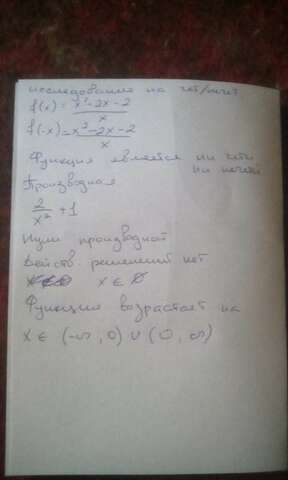 исследование на чет/нечет
f(x) = x² - 2x - 2 / x
f(-x) = x² - 2x - 2 / x
Функция является ни четн
ни нечетн
Производная
2/x² + 1
Нули производной
Действ. решений нет
x ∈ ∅
Функция возрастает на
x ∈ (-∞, 0) ∪ (0, ∞)